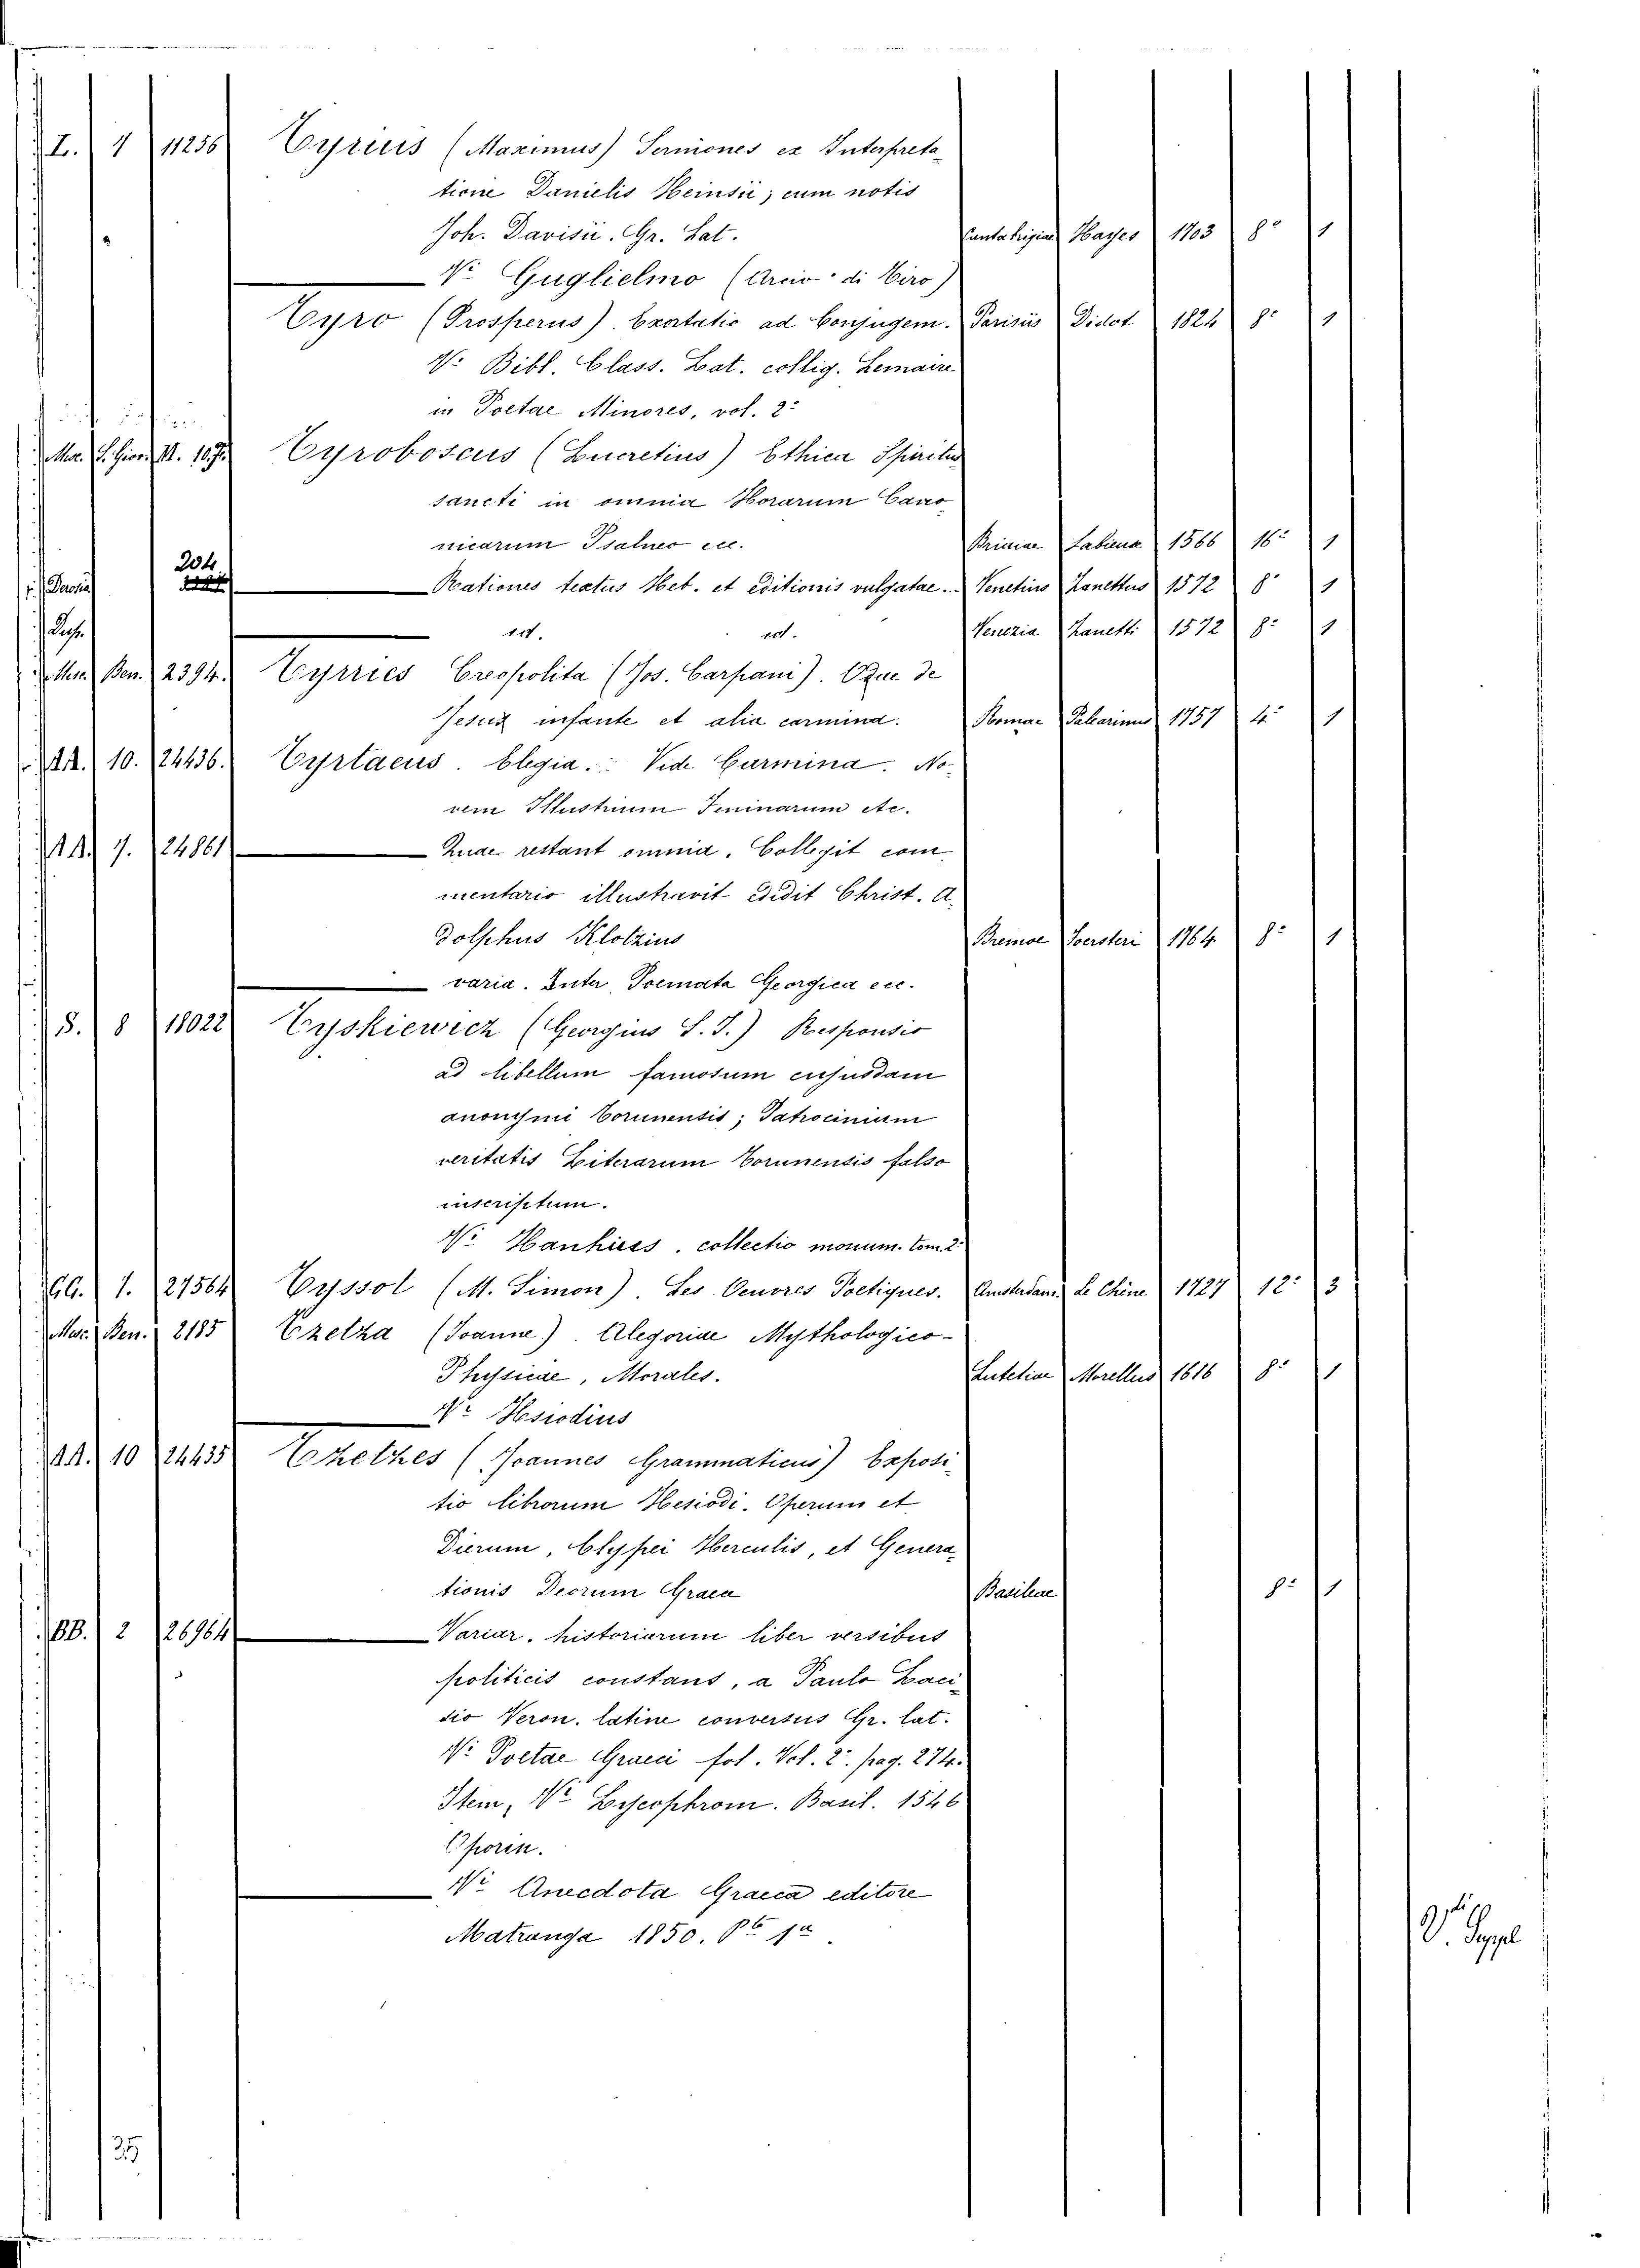 I. 4 11256 Tyrius (Maximus) Sermones ex Interpreta-
tione Danielis Heinsii; cum notis
Joh. Davisii. Gr. Lat. Cantabrigiae Hayes 1703 8º 1
Vº Guglielmo (Arciv di Tiro)
Tyro (Prosperus). Exortatio ad Conjugem. Parisiis Didot 1824 8º 1
Vº Bibl. Class. Lat. collig. Lemaire
in Poetae Minores, vol. 2º
Mer. S. Gior. II. 107. Tyroboscus (Lucretius) Ethica Spiritus
sancti in omnia Horarum Cano-
nicarum Psalmo ecc. Brixiae Sabiena 1566 16º 1
204
Rationes textus Het. et editionis vulgatae... Venetiis Zanettus 1572 8º 1
Venezia Zanetti 1572 8º 1
Ben. 2394. Tyrries Creopolita (Jos. Carpani). De
Jesu infante et alia carmina. Romae Palearinus 1757 4º 1
AA. 10. 24436. Tyrtaeus. Elegia. Vide Carmina. No-
vem Illustrium Feminarum etc.
AA. 7. 24861 Quae restant omnia. Collegit com-
mentario illustravit edidit Christ. A-
dolphus Klotzius Bremae Foersteri 1764 8º 1
varia. Inter Poemata Georgica ecc.
S. 8 18022 Tyskiewicz (Georgius S. J.) Responsio
ad libellum famosum cujusdam
anonymi Torunensis; Patrocinium
veritatis Literarum Torunensis falso
inscriptum.
Vº Hankiess. collectio monum. tom. 2º
GG. 1. 27564 Tyssot (M. Simon). Les Oeuvres Poetiques. Amsterdam Le Chéne 1727 12º 3
Ben. 2185 Tzetza (Joanne). Alegoriae Mythologico-
Physicae, Morales. Lutetiae Morellus 1616 8º 1
Vº Hesiodius
AA. 10 24435 Tzetzes (Joannes Grammaticus) Exposi-
tio librorum Hesiodi. Operum et
Dierum, Clypei Herculis, et Genera-
tionis Deorum Graece Basileae 8º 1
BB. 2 26964 Variar. historiarum liber versibus
politicis constans, a Paulo Laci-
sio Veron. latine conversus Gr. lat.
Vº Poetae Graeci fol. Vol. 2º. pag. 274.
Item, Vº Lycophrom. Basil. 1546
Oporin.
Vº Anecdota Graeca editore
Matranga 1850. Pº 1ª.
V. Suppl
35